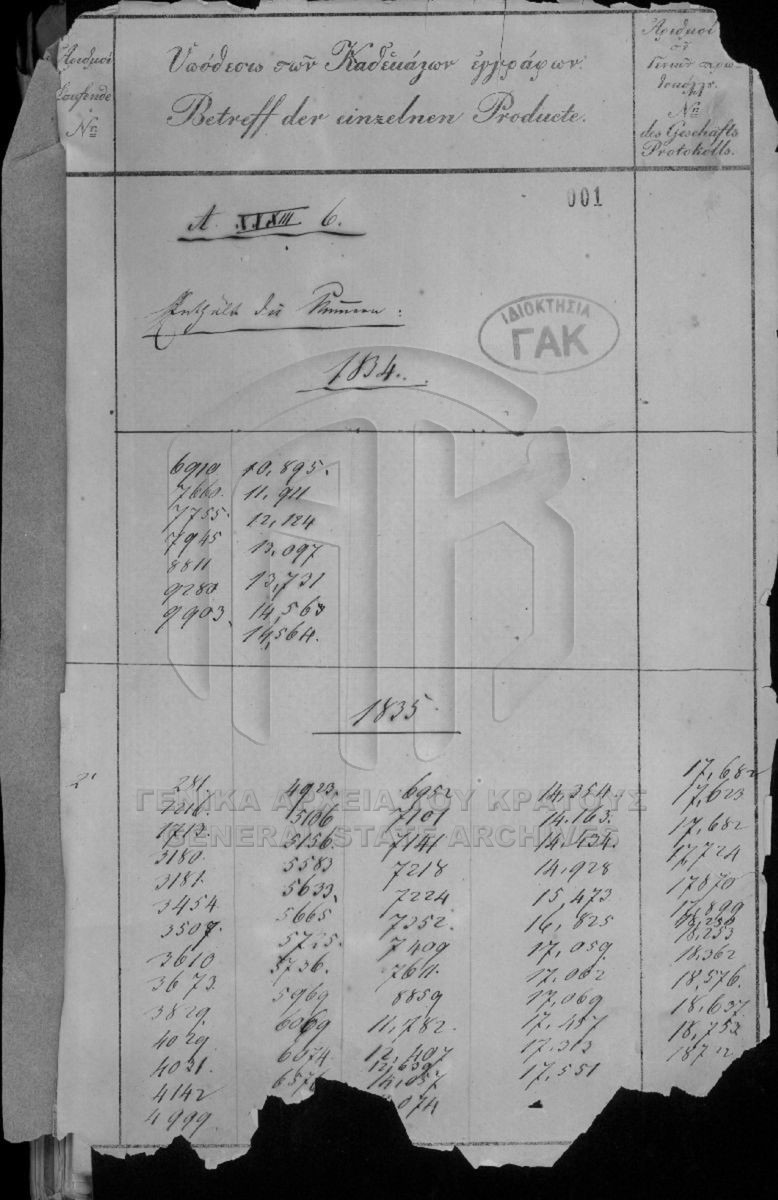 Ἀριθμοὶ
Laufende
Nrn
Ὑπόθεσις τῶν Καθεκάστων ἐγγράφων.
Betreff der einzelnen Producte.
Ἀριθμοὶ
τοῦ
Γενικοῦ πρω-
τοκόλλ.
Nrn
des Geschäfts
Protokolls.
001
A. XXXIII 6.
Enthält die Numern :
ΙΔΙΟΚΤΗΣΙΑ
ΓΑΚ
1834.
6910 10,895.
7660. 11,911
7755. 12,124
7945 13,097
8811 13,731
9280 14,563
9903. 14,564.
1835.
2
281. 4923. 6952 14,254. 17,682
1216. 5106 7101 14,163. 17,623
1712. 5156 7141 14,434. 17,682
3180. 5583 7218 14,928 17,724
3181. 5633. 7224 15,473 17870
3454 5665 7352. 16,825 17,899
18,230
3507. 5725. 7409 17,059 18,253
3610 5736. 7611. 17,062 18,362
3673. 5969 8859 17,069 18,576.
3829. 6069 11,782. 17,457 18,637
4029. 6374 12,407 17,313 18,753
12,639
4031. 6576 14,057 17,551
4142 074
4999.
ΓΕΝΙΚΑ ΑΡΧΕΙΑ ΤΟΥ ΚΡΑΤΟΥΣ
GENERAL STATE ARCHIVES